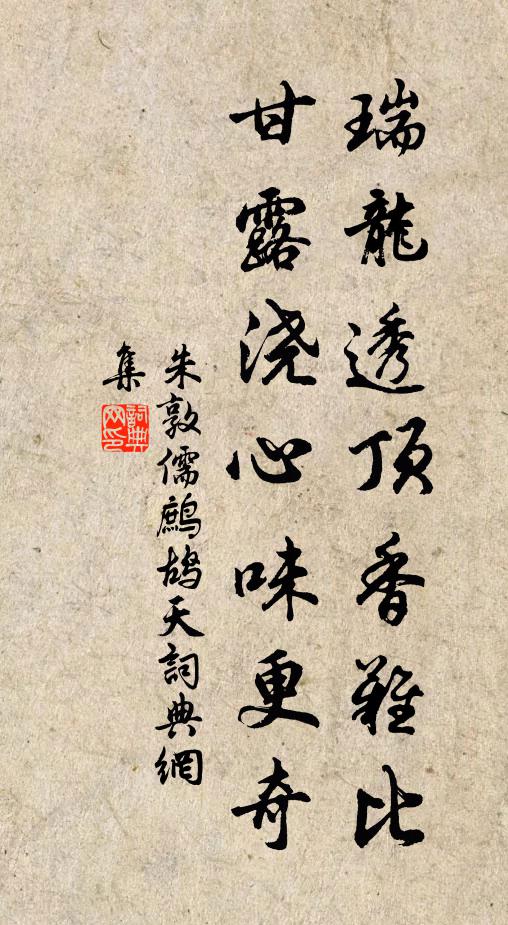 瑞龍透頂香難比
甘露浇心味更奇
朱敦儒鷓鴣天詞典網
集
詞典网印